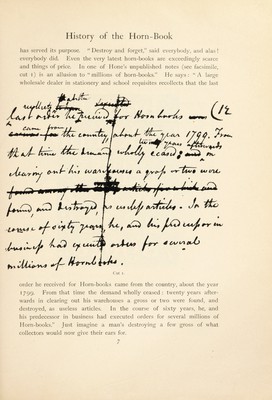 History of the Horn-Book
has served its purpose. "Destroy and forget," said everybody, and alas!
everybody did. Even the very latest horn-books are exceedingly scarce
and things of price. In one of Hone's unpublished notes (see facsimile,
cut 1) is an allusion to "millions of horn-books." He says: "A large
wholesale dealer in stationery and school requisites recollects that the last
recollects that the
last order he received for Hornbooks
came from
the country, about the year 1799. From
twenty years afterwards
that time the demand wholly ceased: in
clearing out his warehouse a gross or two were
found, and destroyed, as useless articles. In the
course of sixty years, he, and his predecessor in
business had executed orders for several
millions of Hornbooks.
Cut 1.
order he received for Horn-books came from the country, about the year
1799. From that time the demand wholly ceased: twenty years after-
wards in clearing out his warehouses a gross or two were found, and
destroyed, as useless articles. In the course of sixty years, he, and
his predecessor in business had executed orders for several millions of
Horn-books." Just imagine a man's destroying a few gross of what
collectors would now give their ears for.
7